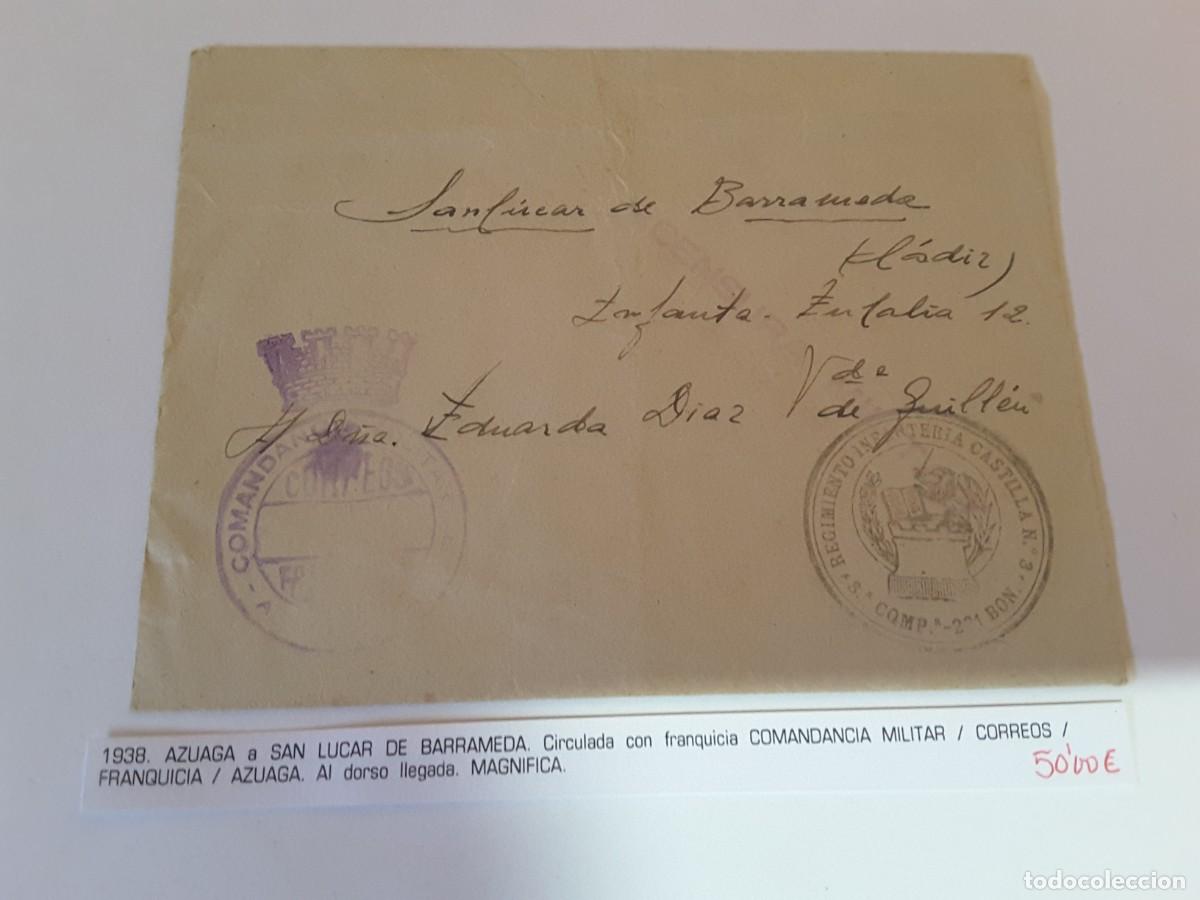 Sanlúcar de Barrameda
(Cádiz)
Infanta. Eulalia 12.
A Dña. Eduarda Diaz Vda de Guillén
CENSU
COMANDAN
CORREOS
REGIMIENTO INFANTERIA CASTILLA N.º 3
5.ª COMP.ª - 2 1 BON.
1938. AZUAGA a SAN LUCAR DE BARRAMEDA. Circulada con franquicia COMANDANCIA MILITAR / CORREOS /
FRANQUICIA / AZUAGA. Al dorso llegada. MAGNIFICA.
50'00€
todocoleccion